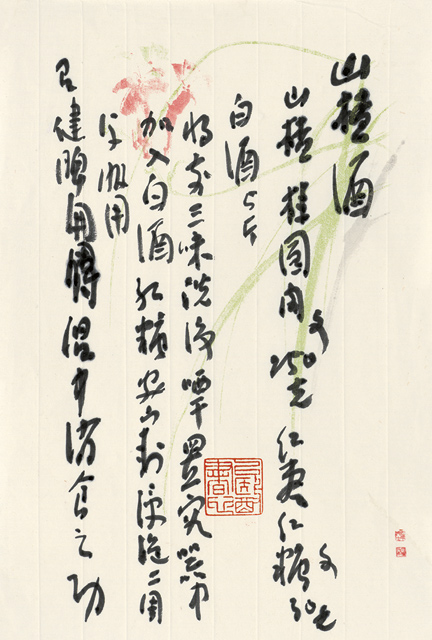 山楂酒
山楂 桂圆肉 各250克 红枣 红糖 各30克
白酒
将前三味洗净晒干置容器中
加入白酒红糖密封浸泡二周
服用
有健脾开胃温中消食之功